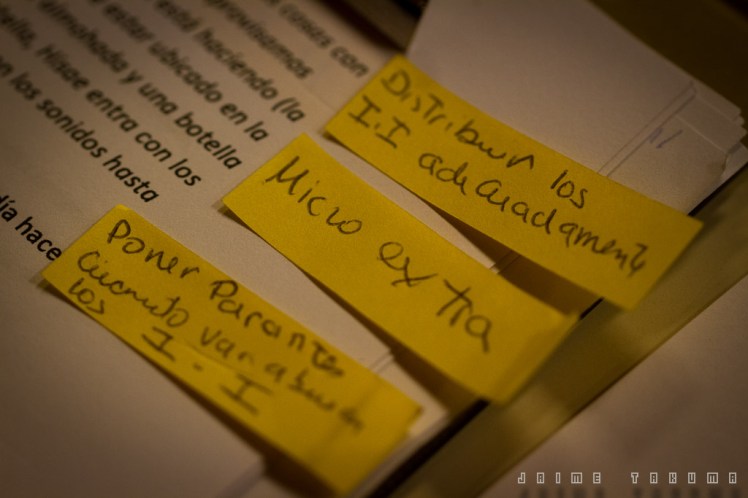 cosas con
improvisamos
está haciendo (la
estar ubicado en la
almohada y una botella
Hisae entra con los
los sonidos hasta
día hace
Distribuir los
I.I adecuadamente
Micro extra
Poner Parantes
Cuando van a
los I.I
JAIME TAKUMA